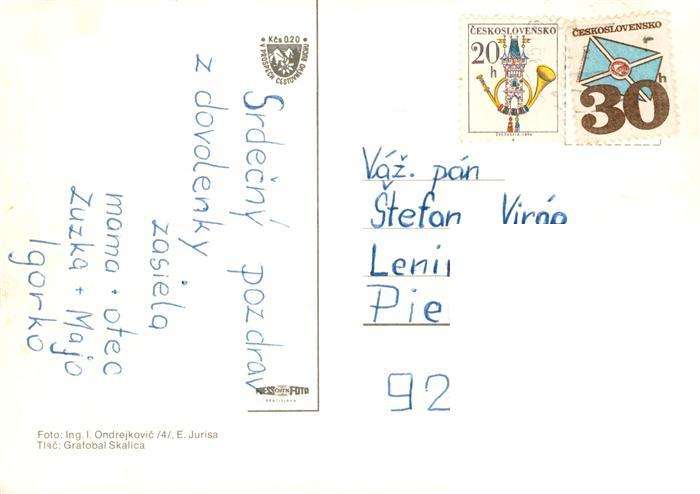 Kčs 0.20
V PROSPECH CESTOVNÉHO RUCHU
Srdečný pozdrav
z dovolenky
zasiela
mama + otec
Zuzka + Majo
Igorko
PRESSFOTO
BRATISLAVA
Foto: Ing. I. Ondrejkovič /4/, E. Jurisa
Tlač: Grafobal Skalica
ČESKOSLOVENSKO
20 h
ČESKOSLOVENSKO
30 h
Váž. pán
Štefan
Lenin
Pie
92